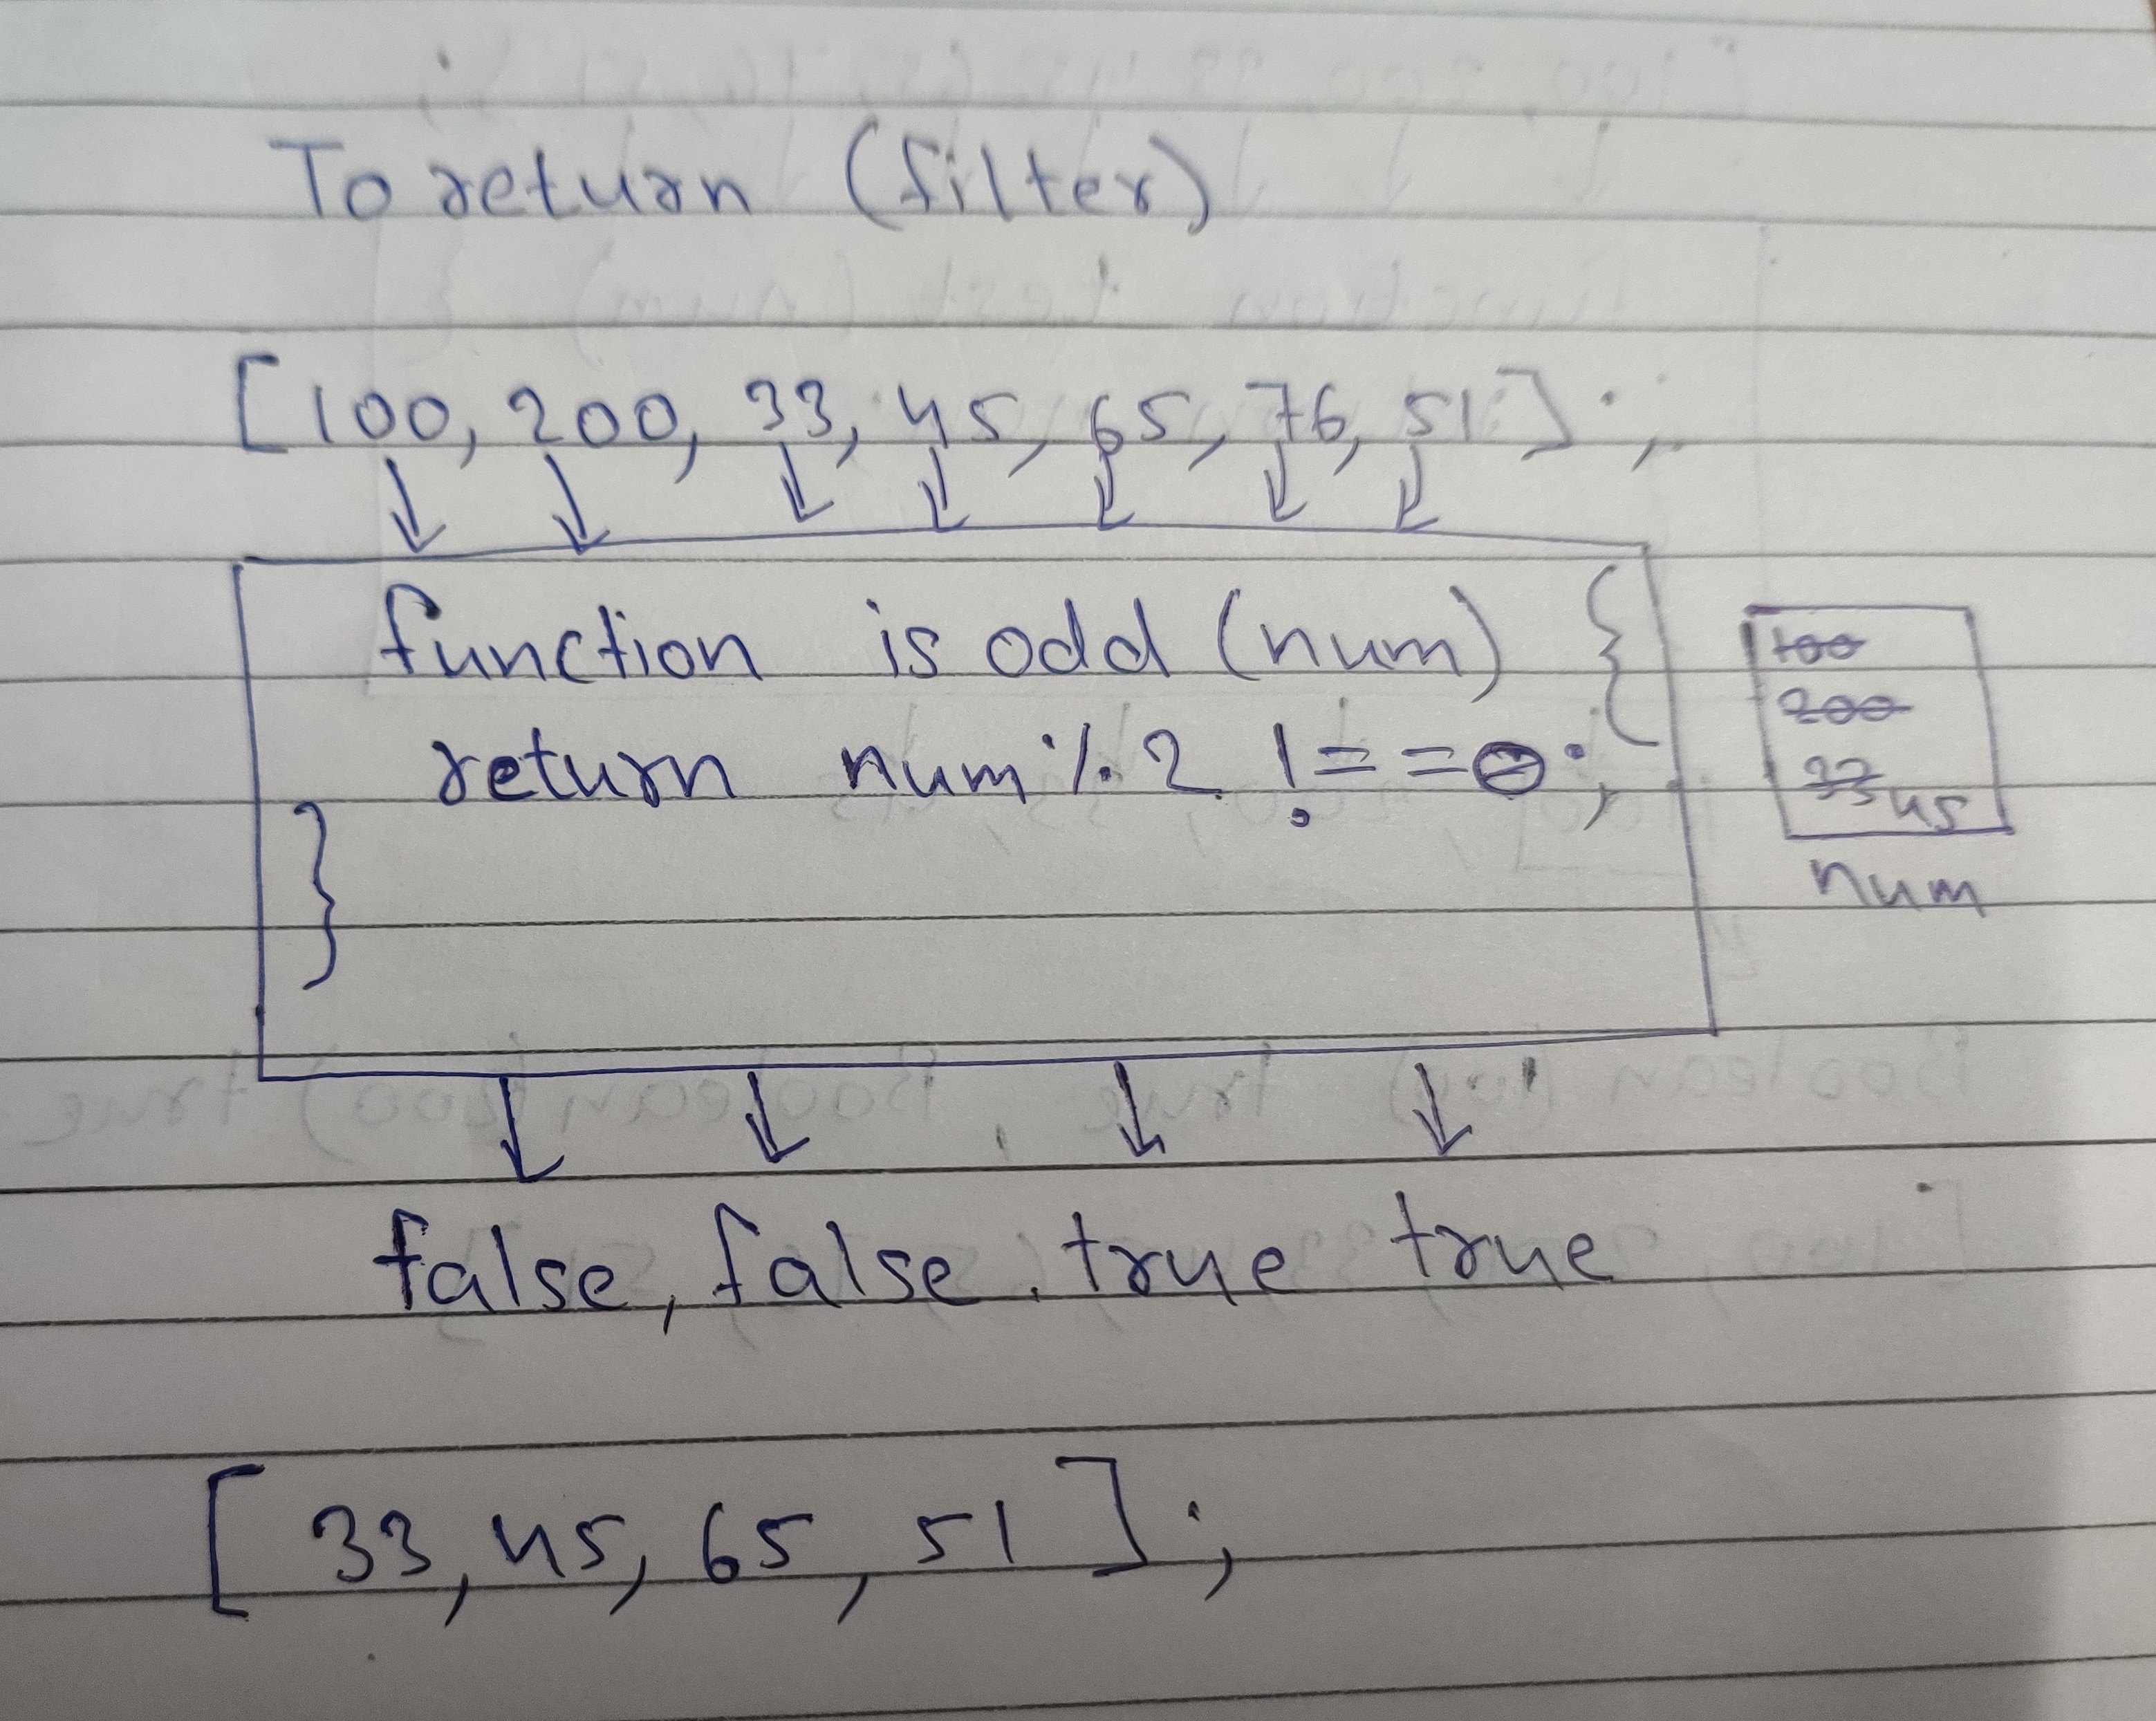 To return (filter)
[100, 200, 33, 45, 65, 76, 51];
function is odd (num) {
return num % 2 !==0;
}
100
200
33 45
num
false, false, true true
[33, 45, 65, 51];